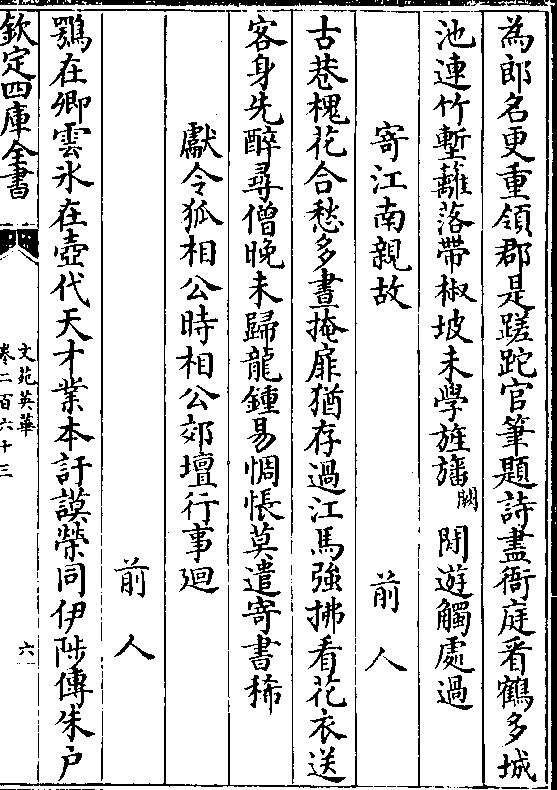 為郎名更重領郡是蹉跎官筆題詩盡衙庭看鶴多城
池連竹塹籬落帶椒坡未學旌旛闕閒遊觸處過
寄江南親故
前人
古巷槐花合愁多晝掩扉猶存過江馬強拂看花衣送
客身先醉尋僧晚未歸龍鍾易惆悵莫遣寄書稀
獻令狐相公時相公郊壇行事廻
前人
鶚在卿雲氷在壺代天才業本訏謨榮同伊陟傳朱户
欽定四庫全書
文苑英華
卷二百六十三
六